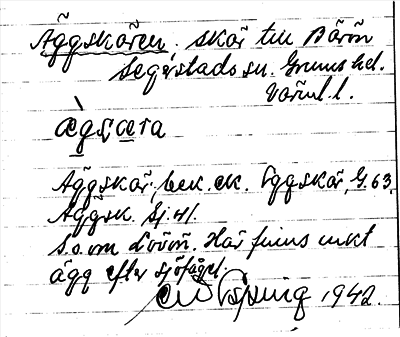 Äggskären, skär till Bärön
Segerstads sn. Grums hd.
Värml. l.
Äggskär, bek. ek. Eggskär, G. 63.
Äggsk. Sj. kl.
S.o. om Lövön. Här finns mkt
ägg efter sjöfågel.
1942.